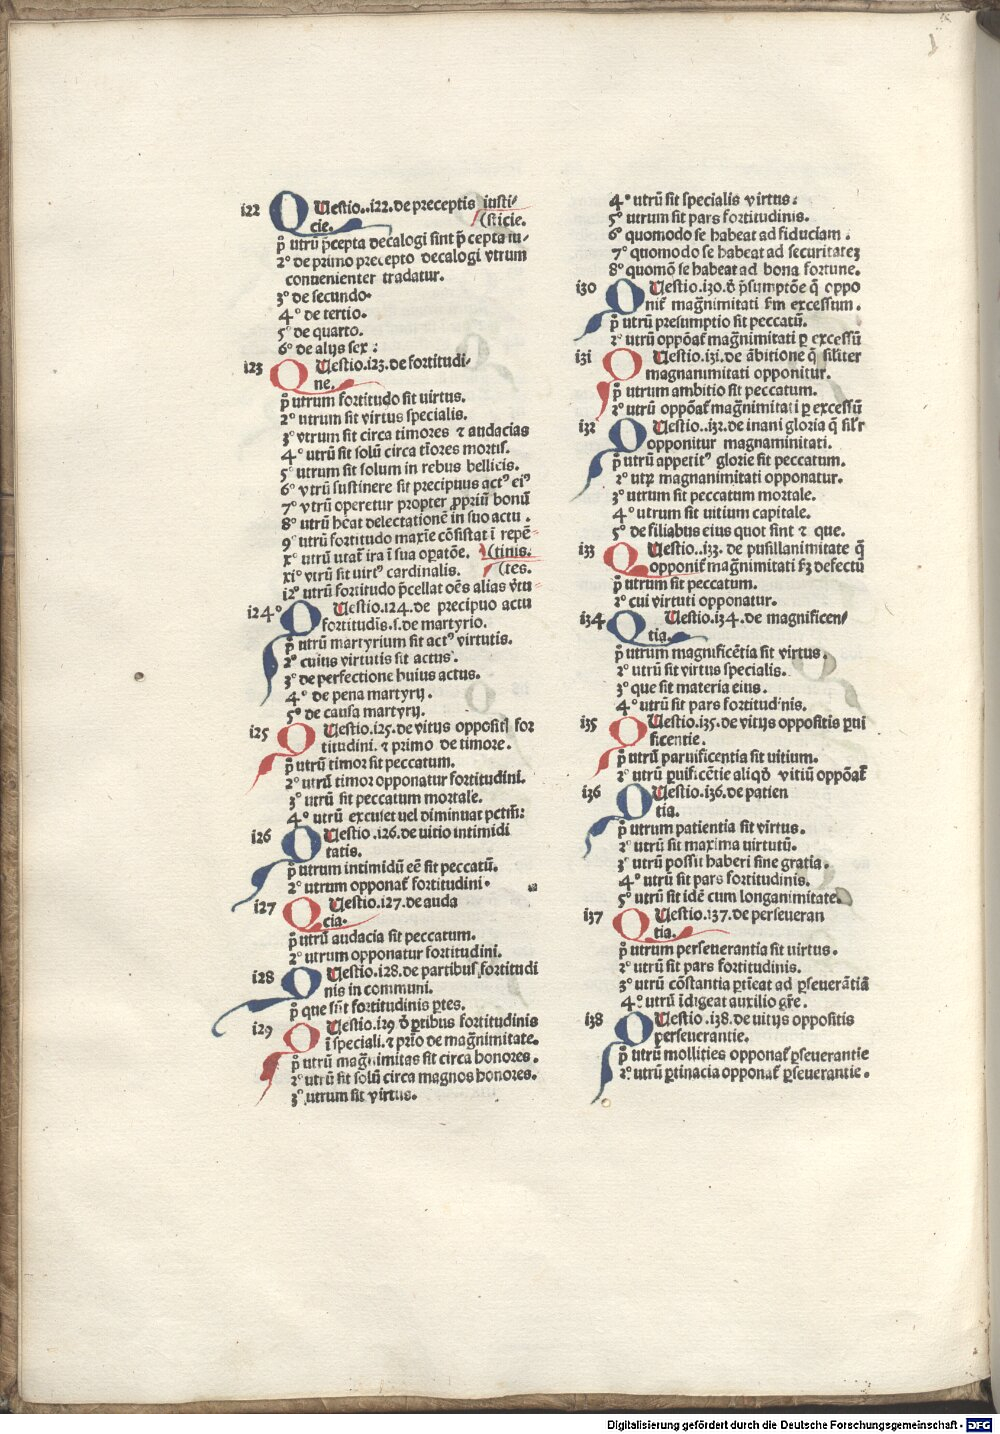 i22 QUestio..i22.de preceptis iusti-
cie. (sticie.
p̊ utrũ p̃cepta decalogi sint p̃cepta iu-
2° de primo precepto decalogi vtrum
conuenienter tradatur.
3° de secundo.
4° de tertio.
5° de quarto.
6° de alijs sex :
i23 QUestio.i23.de fortitudi-
ne.
p̊ utrum fortitudo sit uirtus.
2° utrum sit virtus specialis.
3° vtrum sit circa timores ⁊ audacias
4° utrũ sit solũ circa tĩores mortis.
5° utrum sit solum in rebus bellicis.
6° vtrũ sustinere sit precipuus actꝰ eiꝰ
7° vtrũ operetur propter ꝓpriũ bonũ
8° utrũ hẽat delectationẽ in suo actu .
9° utrũ fortitudo maxĩe cõsistat ĩ repẽ-
x° utrũ utat᷑ ira ĩ sua oꝑatõe. (tinis.
xi° vtrũ sit uirtꝰ cardinalis. (tes.
i2° utrũ fortitudo p̃cellat oẽs alias v̓tu-
i24° QUestio.i24.de precipuo actu
fortitudĩs.s.de martyrio.
p̊ utrũ martyrium sit actꝰ virtutis.
2° cuius virtutis sit actus.
3° de perfectione huius actus.
4° de pena martyrij.
5° de causa martyrij.
i25 QUestio.i25.de vitijs oppositis for
titudini.⁊ primo de timore.
p̊ utrũ timor sit peccatum.
2° utrũ timor opponatur fortitudini.
3° utrũ sit peccatum mortale.
4° utrũ excuset uel diminuat pctm̃:
i26 QUestio.i26.de uitio intimidi
tatis.
p̊ utrum intimidũ eẽ sit peccatũ.
2° utrum opponat᷑ fortitudini.
i27 QUestio.i27.de auda
cia.
p̊ utrũ audacia sit peccatum.
2° utrum opponatur fortitudini.
i28 QUestio.i28.de partibus fortitudi
nis in communi.
p̊ que sĩt fortitudinis ꝑtes.
i29 QUestio.i29 d̓ ꝑtibus fortitudinis
ĩ speciali.⁊ prĩo de mag̃nimitate.
p̊ utrũ mag̃nimitas sit circa honores.
2° utrũ sit solũ circa magnos honores.
3° utrum sit virtus.
4° utrũ sit specialis virtus:
5° utrum sit pars fortitudinis.
6° quomodo se habeat ad fiduciam.
7° quomodo se habeat ad securitateꝫ
8° quomõ se habeat ad bona fortune.
i30 QUestio.i30.d̓ p̃sumptõe q̃ oppo
nit᷑ mag̃nimitati fm excessum.
p̊ utrũ presumptio sit peccatũ.
2° utrũ oppõat᷑ mag̃nimitati ꝑ excessũ
i3i QUestio.i3i.de ãbitione q̃ siliter
magnanimitati opponitur.
p̊ utrum ambitio sit peccatum.
2° utrũ oppõat᷑ mag̃nimitati ꝑ excessũ
i32 QUestio..i32.de inani gloria q̃ sil'r
opponitur magnaminitati.
p̊ utrũ appetitꝰ glorie sit peccatum.
2° utꝝ magnanimitati opponatur.
3° utrum sit peccatum mortale.
4° utrum sit uitium capitale.
5° de filiabus eius quot sint ⁊ que.
i33 QUestio..i33. de pusillanimitate q̃
opponit᷑ mag̃nimitati fꝫ defectũ
p̊ utrum sit peccatum.
2° cui virtuti opponatur.
i34 QUestio.i34.de magnificen-
tia.
p̊ utrum magnificẽtia sit virtus.
2° utrũ sit virtus specialis.
3° que sit materia eius.
4° utrũ sit pars fortitudinis.
i35 QUestio.i35.de vitijs oppositis ꝑui
ficentie.
p̊ utrũ paruificentia sit uitium.
2° utrũ ꝑuificẽtie aliqd̓ vitiũ oppõat᷑
i36 QUestio.i36.de patien
tia.
p̊ utrum patientia sit virtus.
2° utrũ sit maxima uirtutũ.
3° utrũ possit haberi sine gratia.
4° utrũ sit pars fortitudinis.
5° utrũ sit idẽ cum longanimitate.
i37 QUestio.i37.de perseueran
tia.
p̊ utrum perseuerantia sit uirtus.
2° utrũ sit pars fortitudinis.
3° utrũ cõstantia ꝑtĩeat ad ꝑseuerãtiã
4° utrũ ĩdigeat auxilio gr̃e.
i38 QUestio.i38.de uitijs oppositis
perseuerantie.
p̊ utrũ mollities opponat᷑ ꝑseuerantie
2° utrũ ꝑtinacia opponat᷑ ꝑseuerantie.
Digitalisierung gefördert durch die Deutsche Forschungsgemeinschaft - DFG